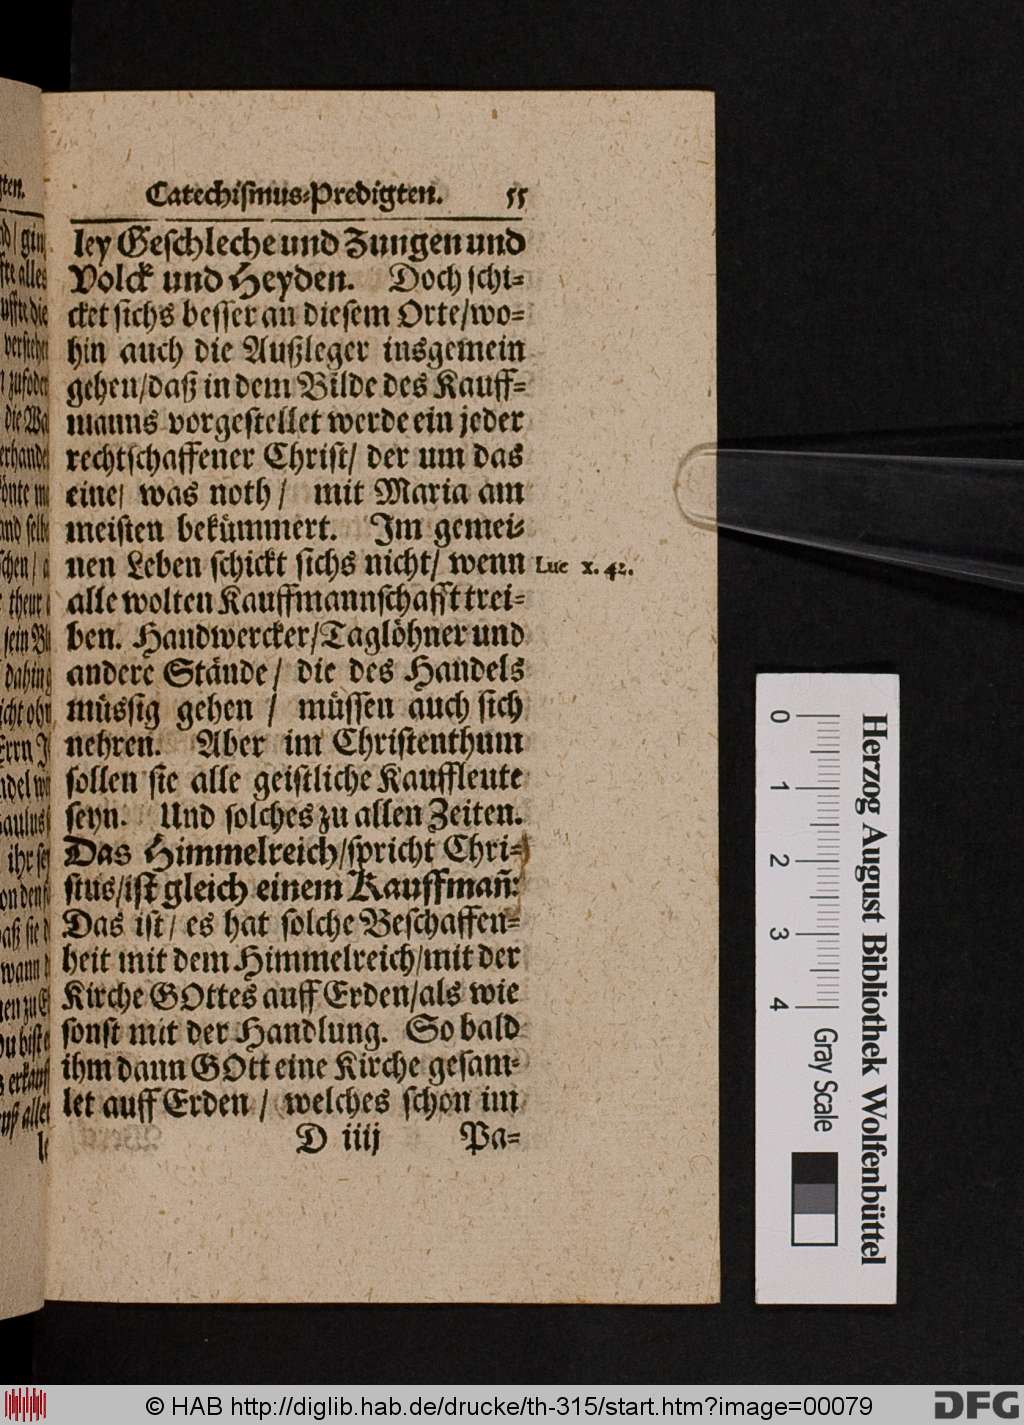 Catechiſmus-Predigten. 55
ley Geſchleche und Zungen und
Volck und Heyden. Doch ſchi-
cket ſichs beſſer an dieſem Orte/wo-
hin auch die Außleger insgemein
gehen/daß in dem Bilde des Kauff-
manns vorgeſtellet werde ein jeder
rechtſchaffener Chriſt/ der um das
eine/ was noth/ mit Maria am
meiſten bekümmert. Im gemei-
nen Leben ſchickt ſichs nicht/ wenn
Luc x. 42.
alle wolten Kauffmannſchafft trei-
ben. Handwercker/Taglöhner und
andere Stände/ die des Handels
müſſig gehen / müſſen auch ſich
nehren. Aber im Chriſtenthum
ſollen ſie alle geiſtliche Kauffleute
ſeyn. Und ſolches zu allen Zeiten.
Das Himmelreich/ſpricht Chri-
ſtus/iſt gleich einem Kauffmañ:
Das iſt/ es hat ſolche Beſchaffen-
heit mit dem Himmelreich/mit der
Kirche GOttes auff Erden/als wie
ſonſt mit der Handlung. So bald
ihm dann GOtt eine Kirche geſam-
let auff Erden / welches ſchon im
D iiij Pa-
0 1 2 3 4 Gray Scale
Herzog August Bibliothek Wolfenbüttel
© HAB http://diglib.hab.de/drucke/th-315/start.htm?image=00079
DFG